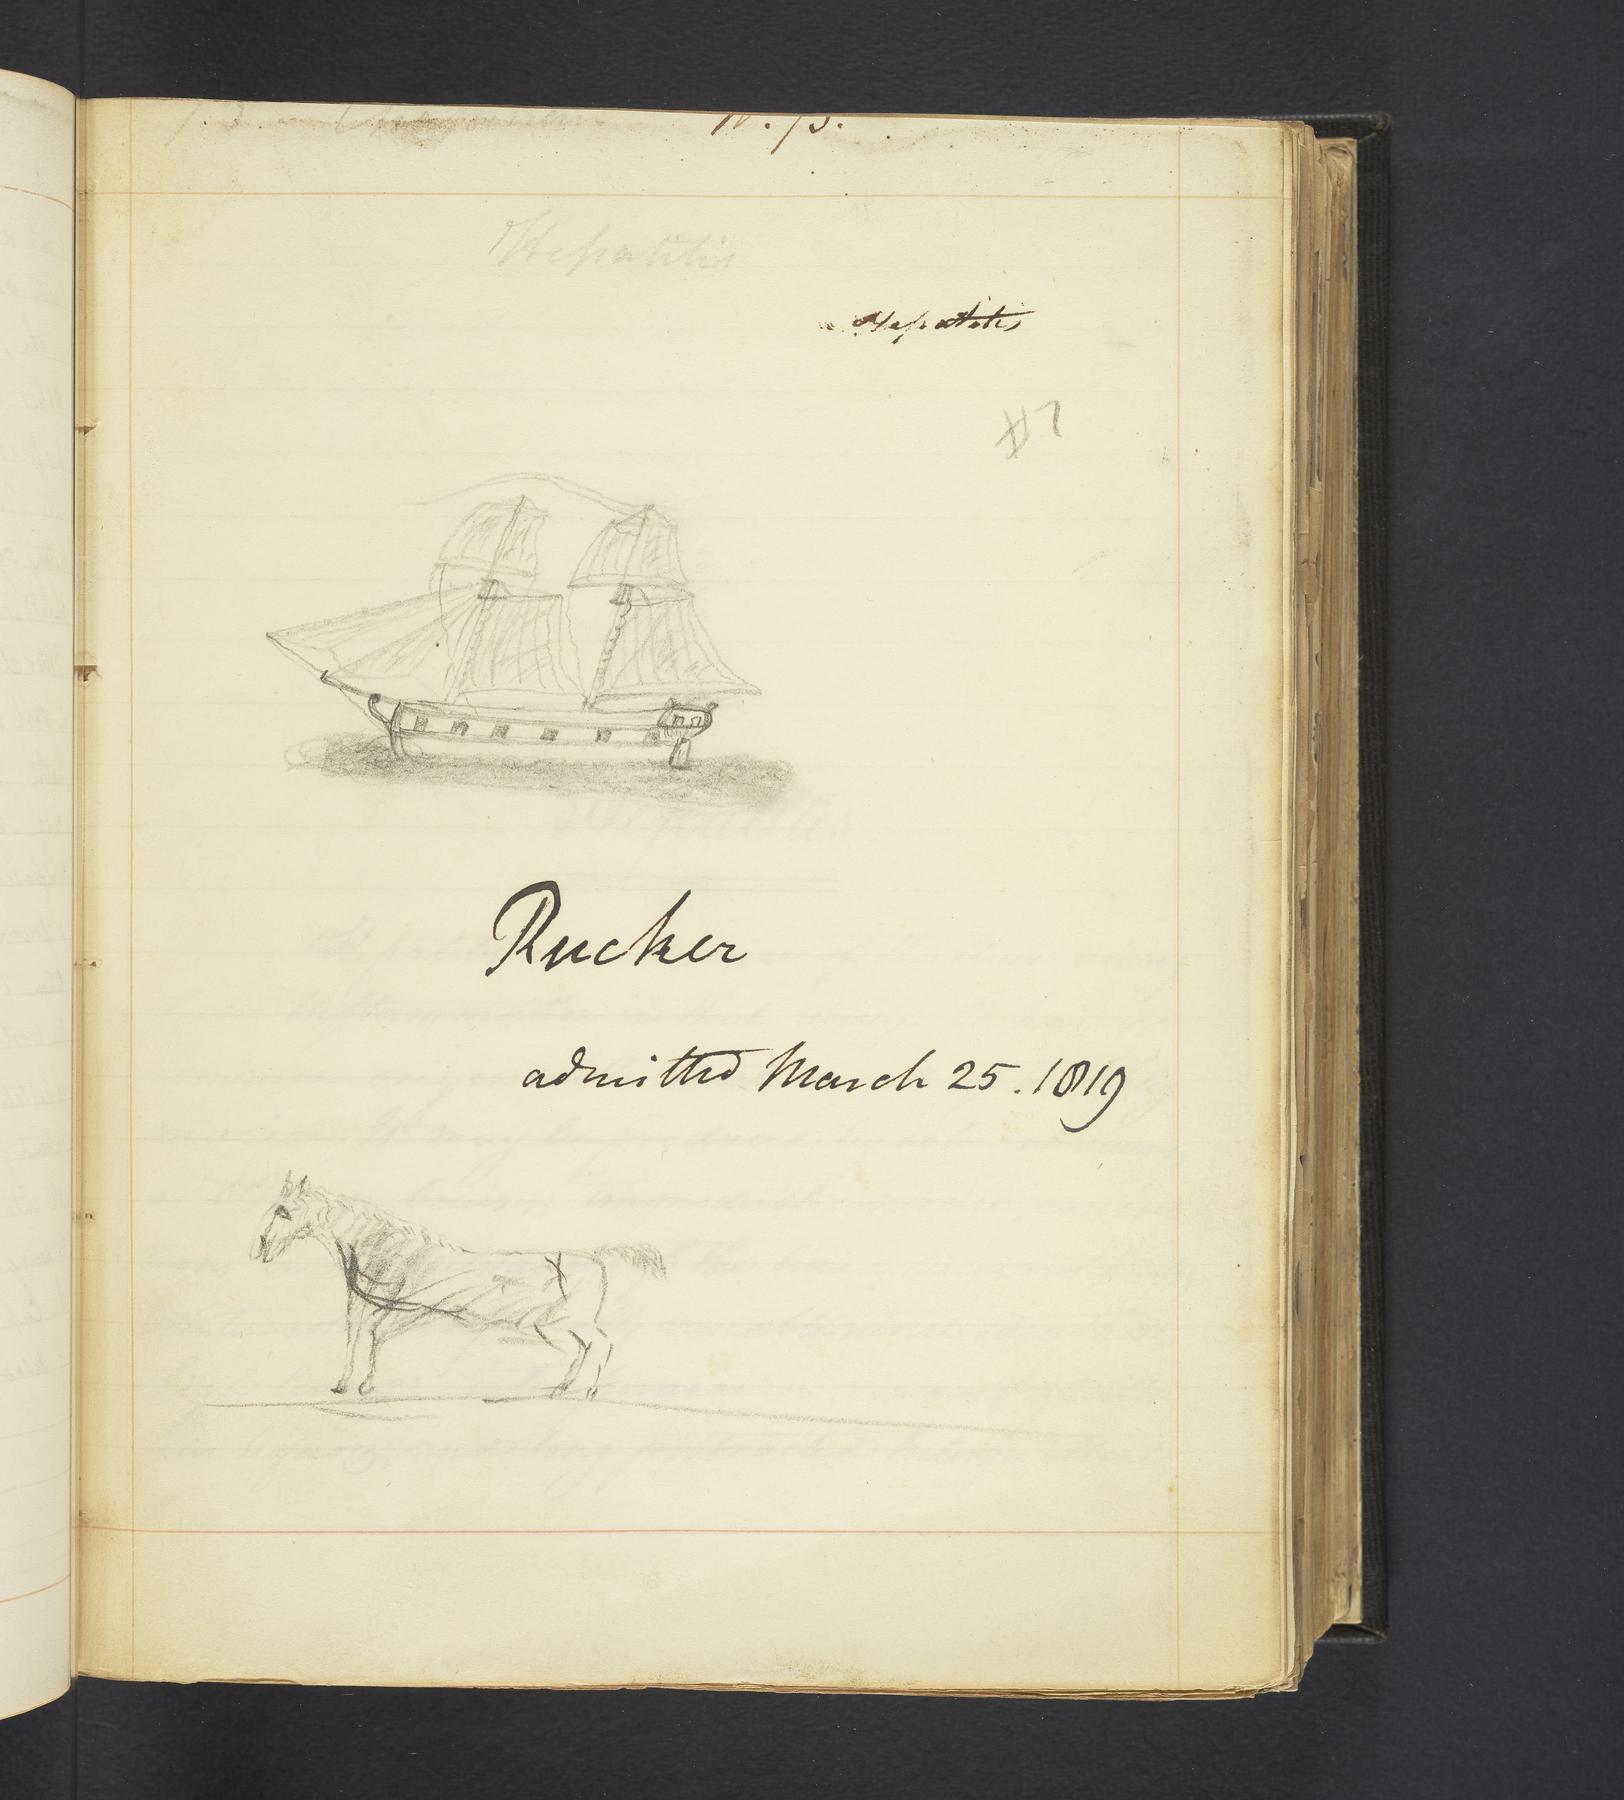 Hepatitis
Hepatitis
#7
Rucker
admitted March 25. 1819